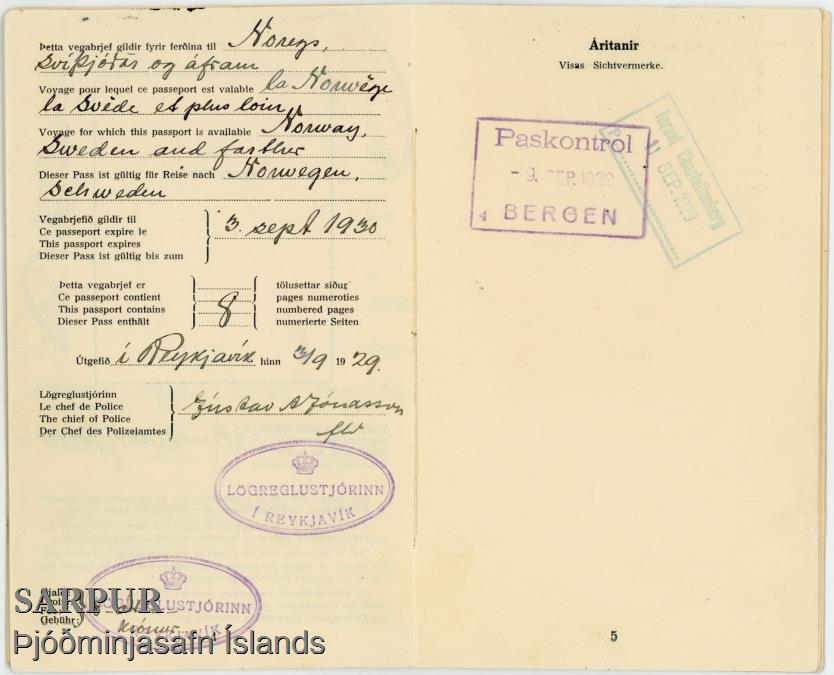 Þetta vegabrjef gildir fyrir ferðina til Noregs,
Svíþjóðar og áfram
Voyage pour lequel ce passeport est valable la Norwège
la Svède et plus loin
Voyage for which this passport is available Norway,
Sweden and farther
Dieser Pass ist gültig für Reise nach Norwegen,
Schweden
Vegabrjefið gildir til
Ce passeport expire le
This passport expires
Dieser Pass ist gültig bis zum
3. sept 1930
Þetta vegabrjef er
Ce passeport contient
This passport contains
Dieser Pass enthält
8
tölusettar síður
pages numeroties
numbered pages
numerierte Seiten
Útgefið í Reykjavík hinn 3/9 1929.
Lögreglustjórinn
Le chef de Police
The chief of Police
Der Chef des Polizeiamtes
Gústav A Jónasson
LÖGREGLUSTJÓRINN
Í REYKJAVÍK
LÖGREGLUSTJÓRINN
Í REYKJAVÍK
Gebühr:
Krónur
SARPUR
Þjóðminjasafn Íslands
Áritanir
Visas Sichtvermerke.
Paskontrol
- 9. SEP. 1929
4 BERGEN
Inrest Charlottenberg
11 SEP. 1929
5